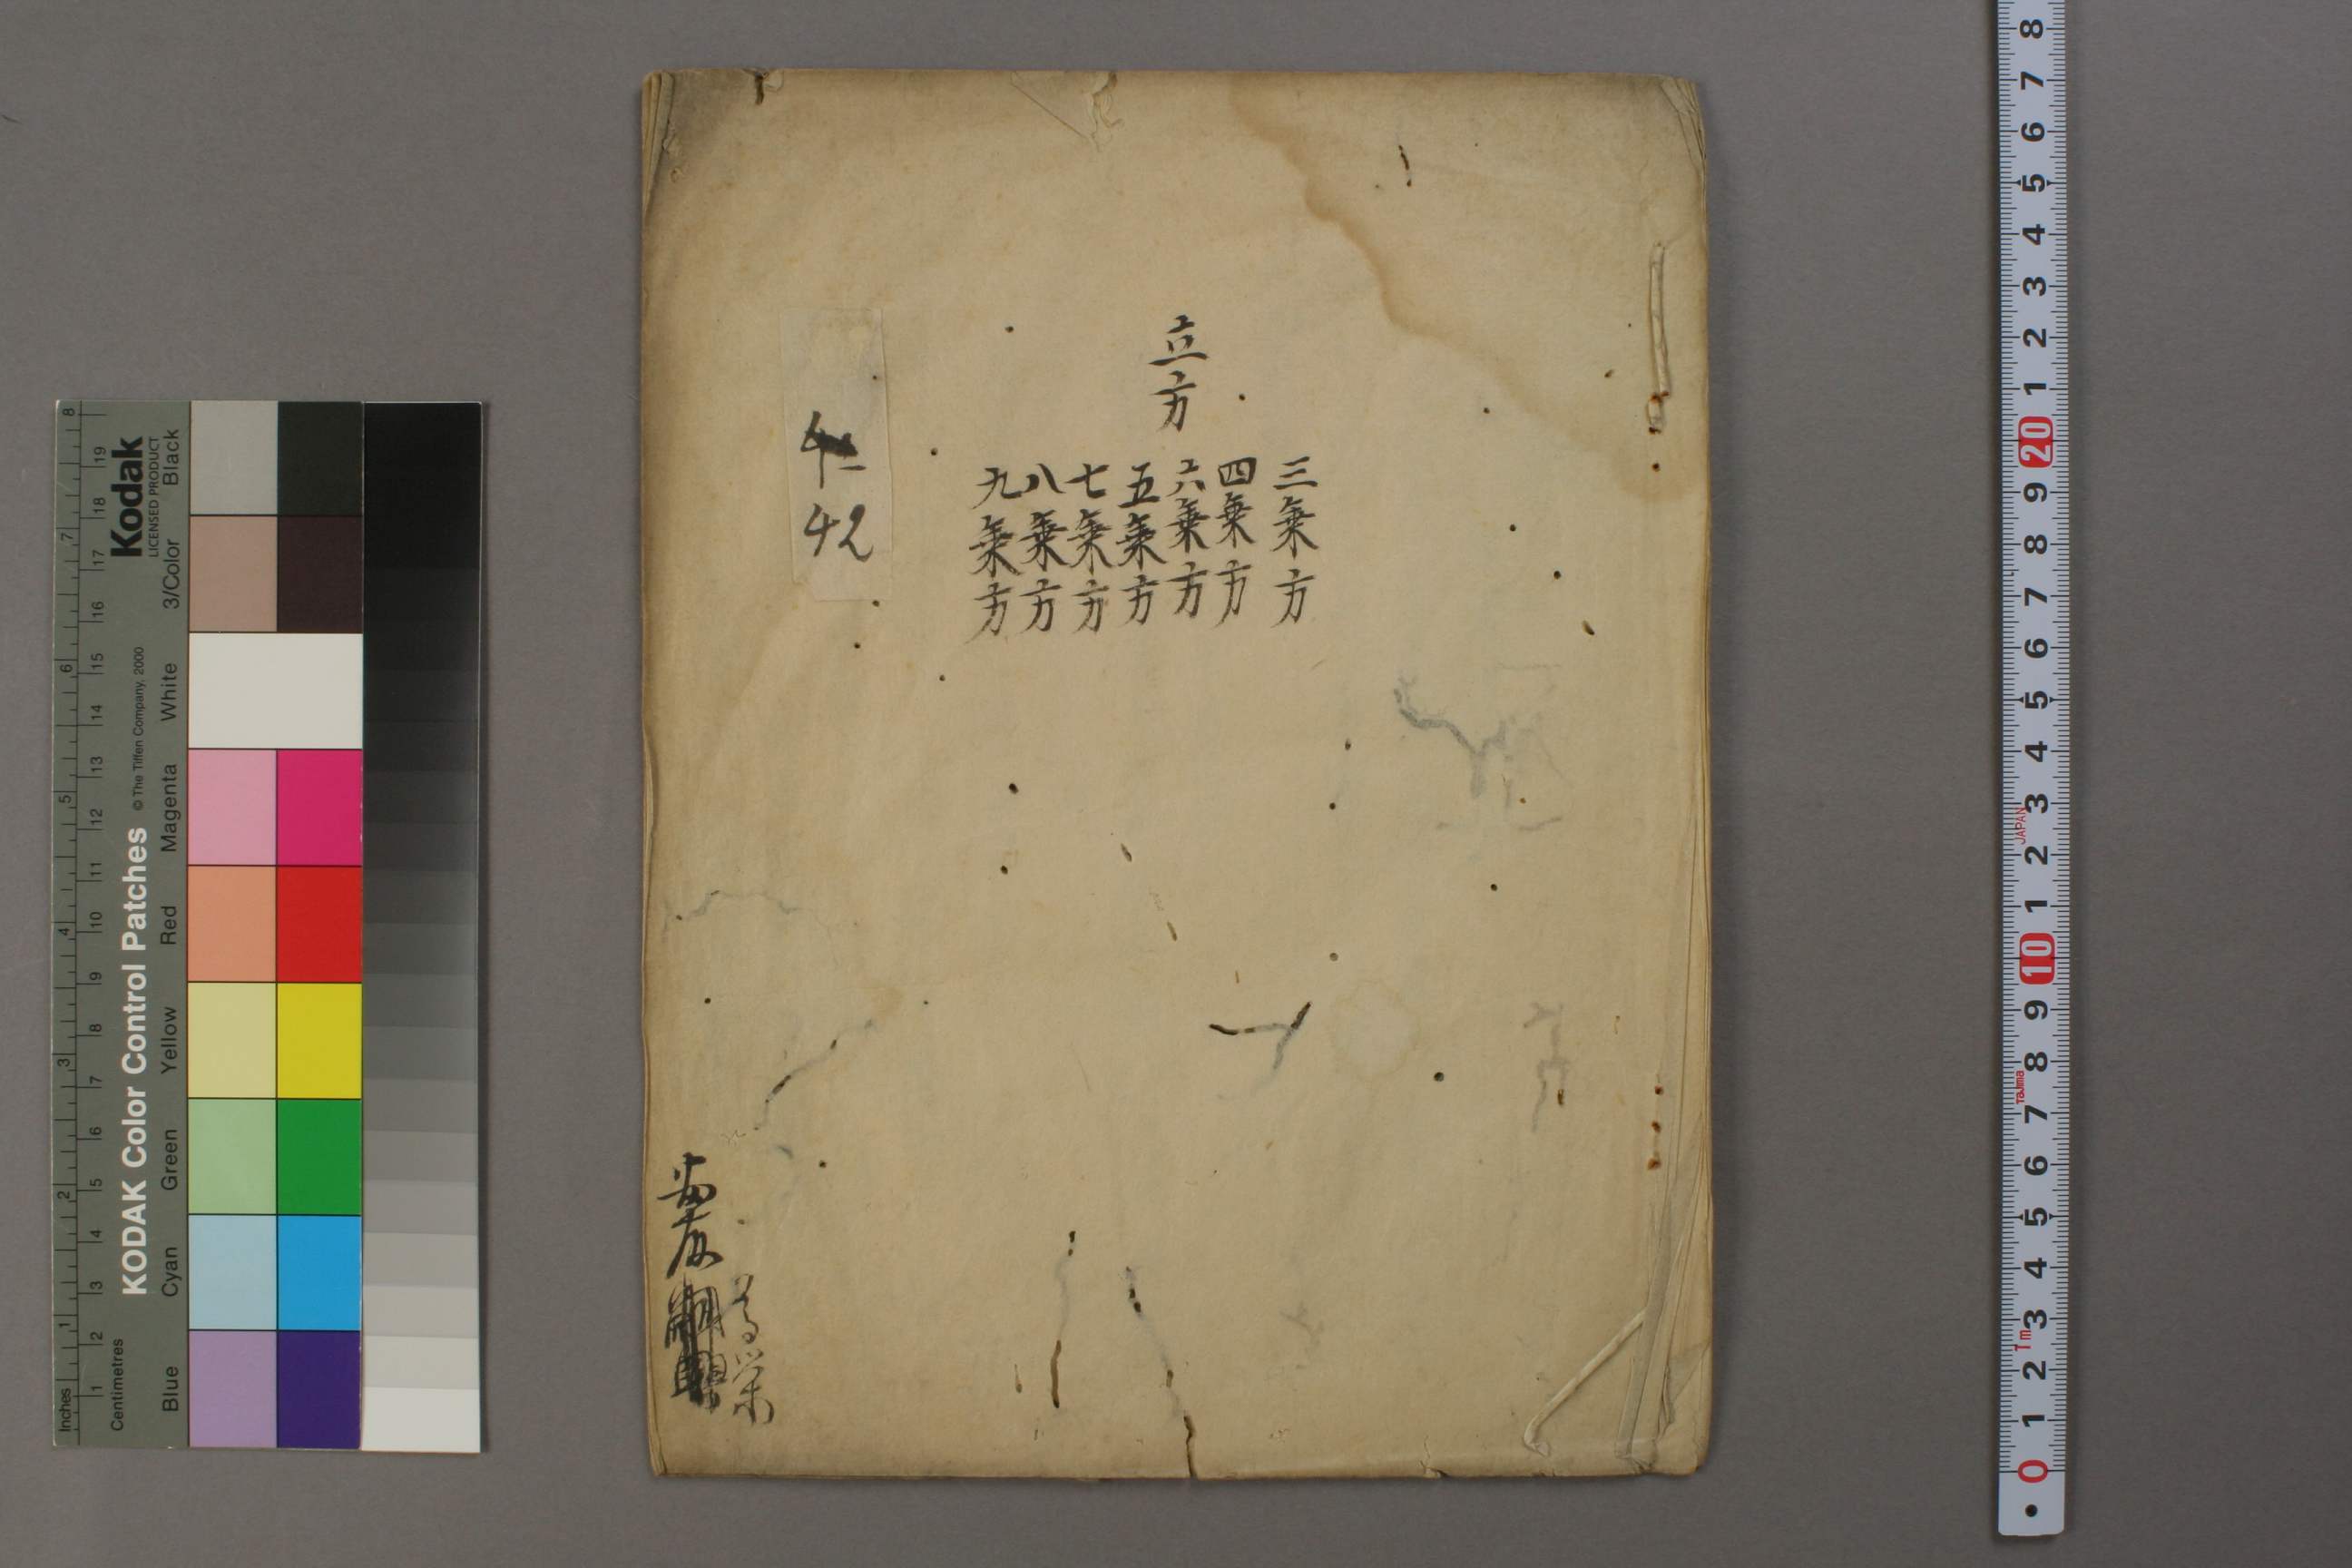 立方
三乗方
四乗方
六乗方
五乗方
七乗方
八乗方
九乗方
42
Kodak
LICENSED PRODUCT
KODAK Color Control Patches
© The Tiffen Company, 2000
Black
3/Color
White
Magenta
Red
Yellow
Green
Cyan
Blue
Inches
1 2 3 4 5 6 7 8
Centimetres
1 2 3 4 5 6 7 8 9 10 11 12 13 14 15 16 17 18 19
8
7
6
5
4
3
2
1
20
9
8
7
6
5
4
3
JAPAN
2
1
10
9
8
Tajima
7
6
5
4
3
1m
2
1
0